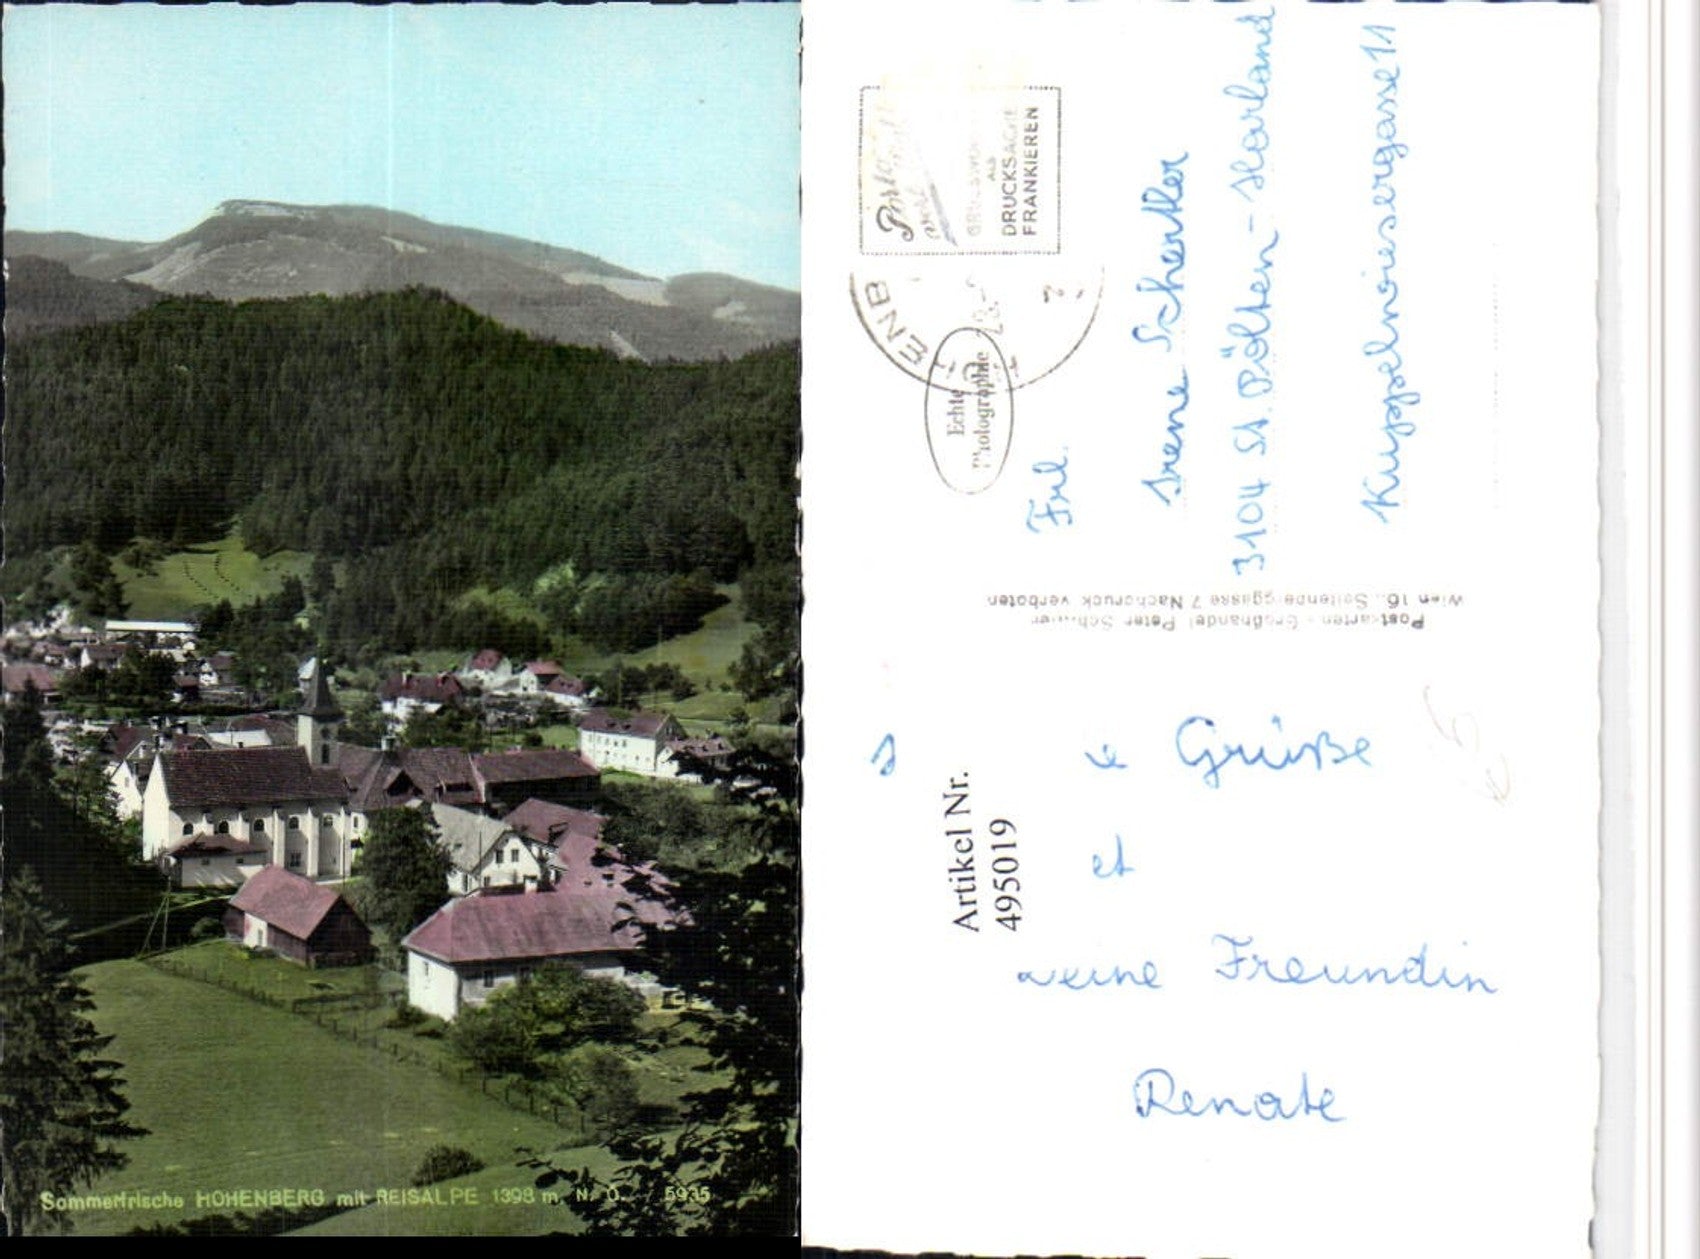 Sommerfrische HOHENBERG mit REISALPE 1398 m. N. Ö. 5935
Postkarte
wenn
GRUSSWORTE
ALS
DRUCKSACHE
FRANKIEREN
ENB
Echte
Photographie
Frl.
Irene Schertler
3104 St. Pölten-Harland
Kuppelwiesergasse 11
Postkarten - Großhandel Peter
Wien 16., Seitenberggasse 7 Nachdruck verboten
Artikel Nr.
495019
Grüße
et
Freundin
Renate